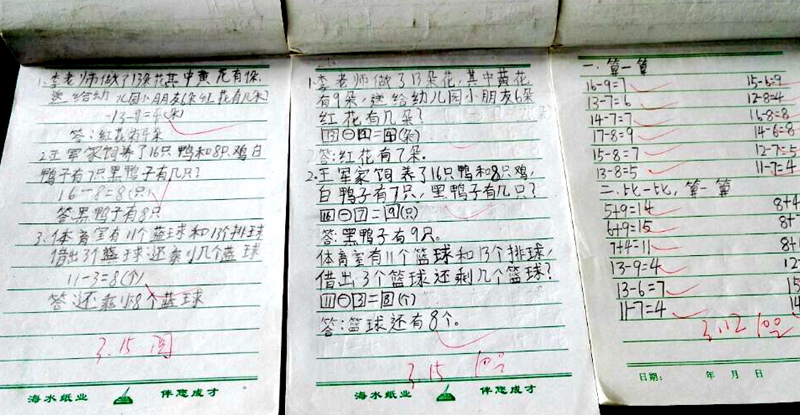 1.李老师做了13朵花其中黄花有9朵,
送给幼儿园小朋友6朵红花有几朵?
13-9=4(朵)
答:红花有4朵
2.王军家饲养了16只鸭和8只鸡白
鸭子有7只黑鸭子有几只?
16-8=8(只)
答黑鸭子有8只
3.体育室有11个蓝球和13个排球
借出3个蓝球还剩几个蓝球
11-3=8(个)
答:还剩8个蓝球
3.15 阅
海水纸业 伴您成才
1.李老师做了13朵花,其中黄花
有9朵,送给幼儿园小朋友6朵
红花有几朵?
答:红花有7朵.
2.王军家饲养了16只鸭和8只鸡,
白鸭子有7只,黑鸭子有几只?
16-7=9(只)
答:黑鸭子有9只。
体育室有11个篮球和13个排球,
借出3个篮球还剩几个篮球?
11-3=8(个)
答:篮球还有8个。
3.15 100
海水纸业 伴您成才
一.算一算
16-9=7 15-6=9
13-7=6 12-8=4
14-7=7 16-8=8
17-8=9 14-6=8
15-8=7 12-7=5
13-8=5 11-7=4
二.比一比,算一算
5+9=14 8+4
6+9=15 8+
7+4=11 8+
13-9=4 12
13-6=7 15
11-7=4 14
3.12 100
日期: 年 月 日